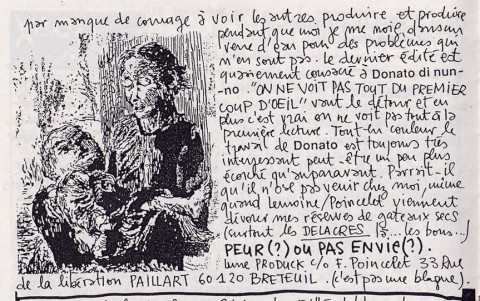 par manque de courage à voir les autres produire et produire
pendant que moi je me noie dans un
verre d'eau pour des problèmes qui
n'en sont pas. Le dernier édité est
quasiement consacré à Donato di nun-
-no. "ON NE VOIT PAS TOUT DU PREMIER
COUP D'OEIL" vaut le détour et en
plus c'est vrai on ne voit pas tout à la
première lecture. Tout en couleur le
travail de Donato est toujours très
interessant peut-être un peu plus
écorché qu'auparavant. Parrait-il
qu'il n'ose pas venir chez moi, même
quand Lemoine/Poincelet viennent
dévorer mes réserves de gateaux secs
(surtout les DELACRES là... les bons...)
PEUR(?) OU PAS ENVIE(?).
Lune PRODUCK c/o F. Poincelet 33 Rue
de la libération PAILLART 60120 BRETEUIL. (c'est pas une blague).